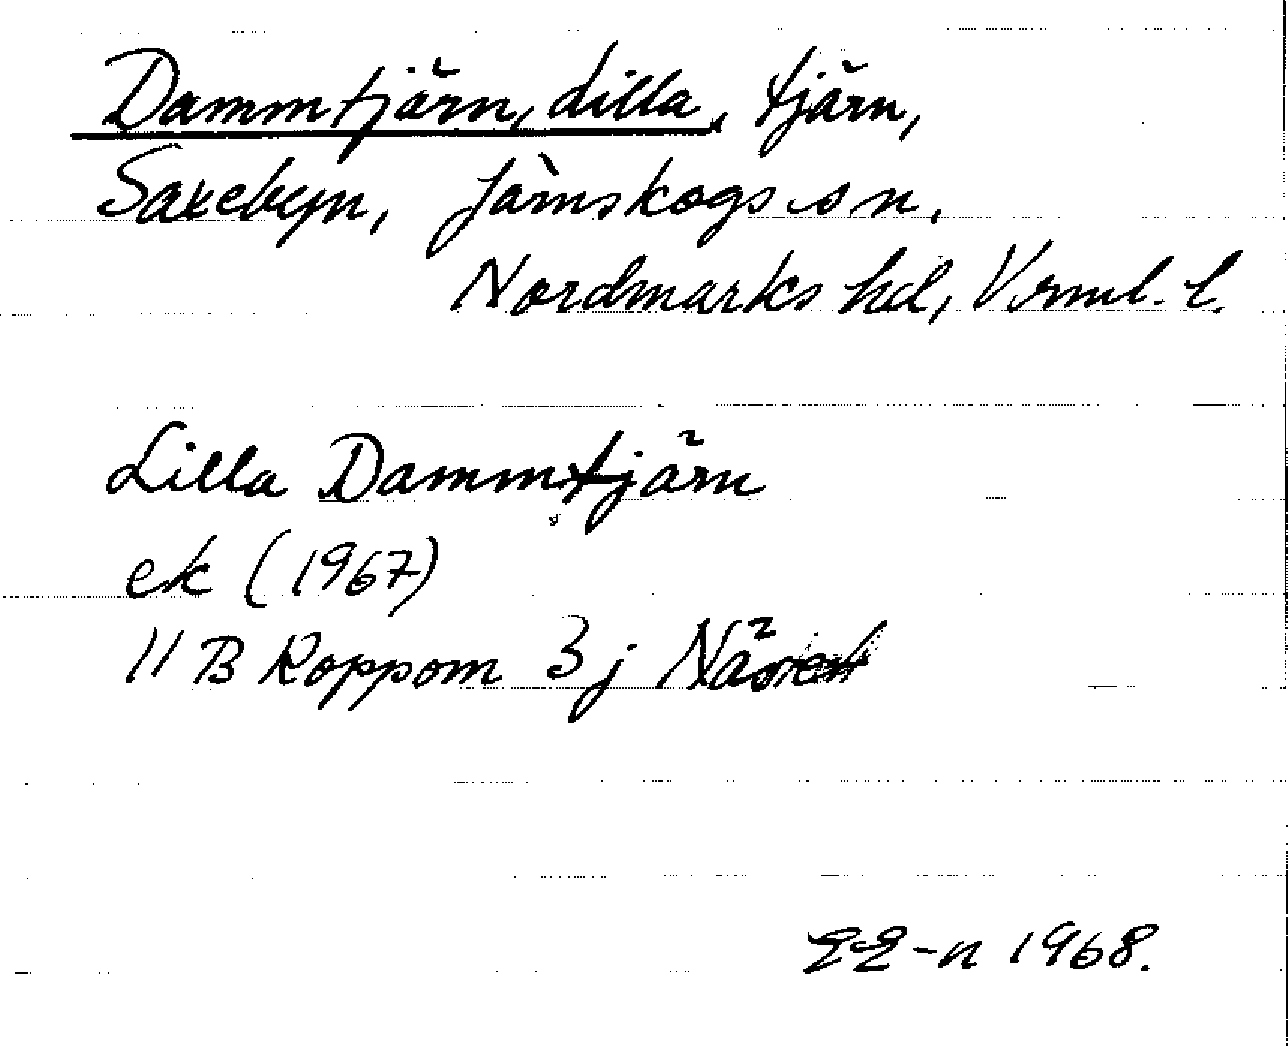 Dammtjärn, Lilla, tjärn,
Saxebyn, Järnskogs sn,
Nordmarks hd, Vrml. l.
Lilla Dammtjärn
ek (1967)
11 B Koppom 3 j
EE-n 1968.